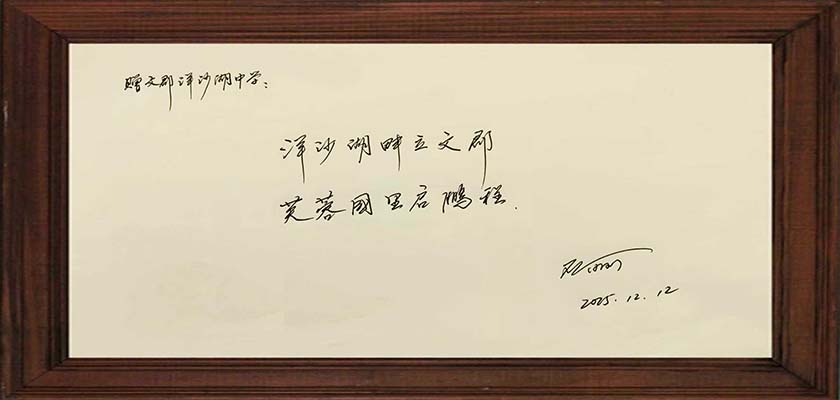 赠文郡洋沙湖中学：
洋沙湖畔立文郡
芙蓉國里启鹏程.
2025.12.12